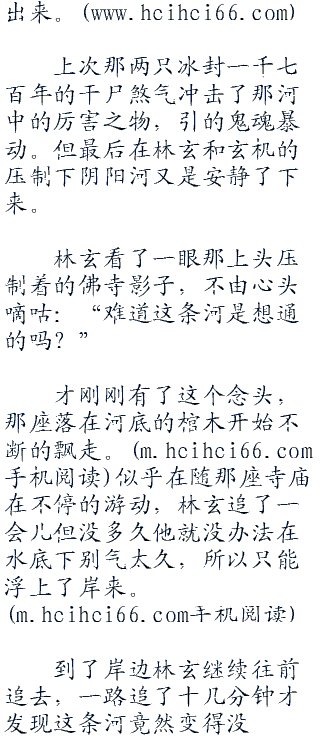 出来。(www.hcihci66.com)
上次那两只冰封一千七
百年的干尸煞气冲击了那河
中的厉害之物，引的鬼魂暴
动。但最后在林玄和玄机的
压制下阴阳河又是安静了下
来。
林玄看了一眼那上头压
制着的佛寺影子，不由心头
嘀咕：“难道这条河是想通
的吗？”
才刚刚有了这个念头，
那座落在河底的棺木开始不
断的飘走。(m.hcihci66.com
手机阅读)似乎在随那座寺庙
在不停的游动，林玄追了一
会儿但没多久他就没办法在
水底下别气太久，所以只能
浮上了岸来。
(m.hcihci66.com手机阅读)
到了岸边林玄继续往前
追去，一路追了十几分钟才
发现这条河竟然变得没